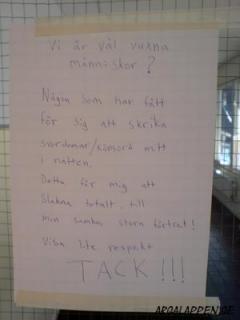 Vi är väl vuxna
människor?
Någon som har fått
för sig att skrika
svordomar/könsord mitt
i natten.
Detta får mig att
slakna totalt, till
min sambos stora förtret!
Visa lite respekt
TACK!!!
ARGALAPPEN.SE